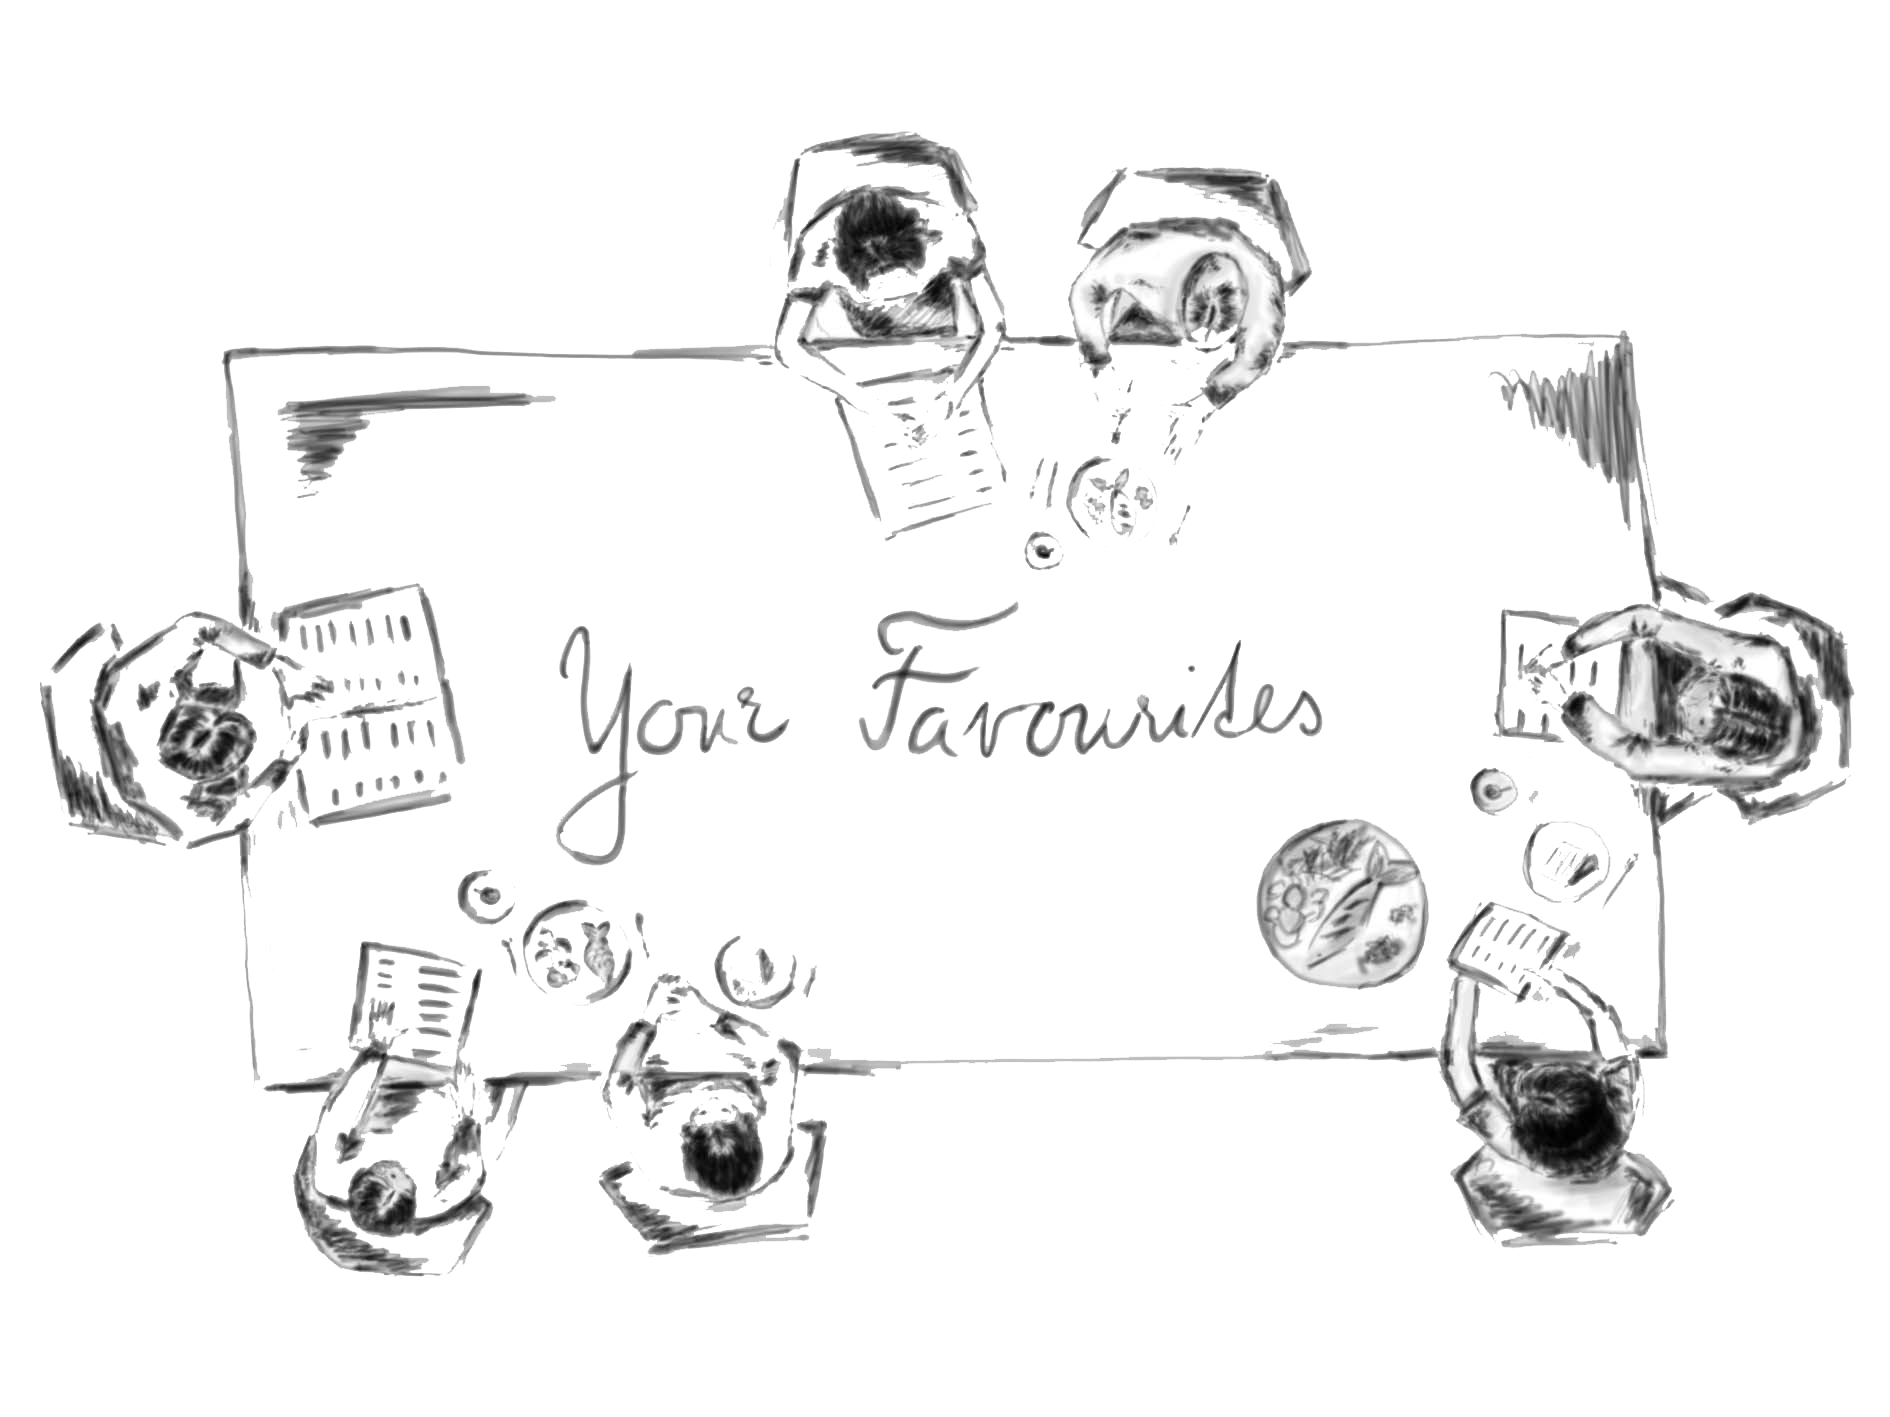 Your Favourites